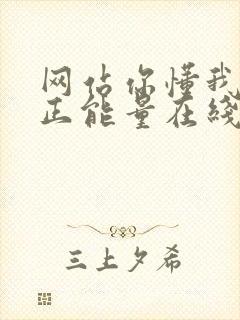 网佔你懂我
正能量在线
三上夕希